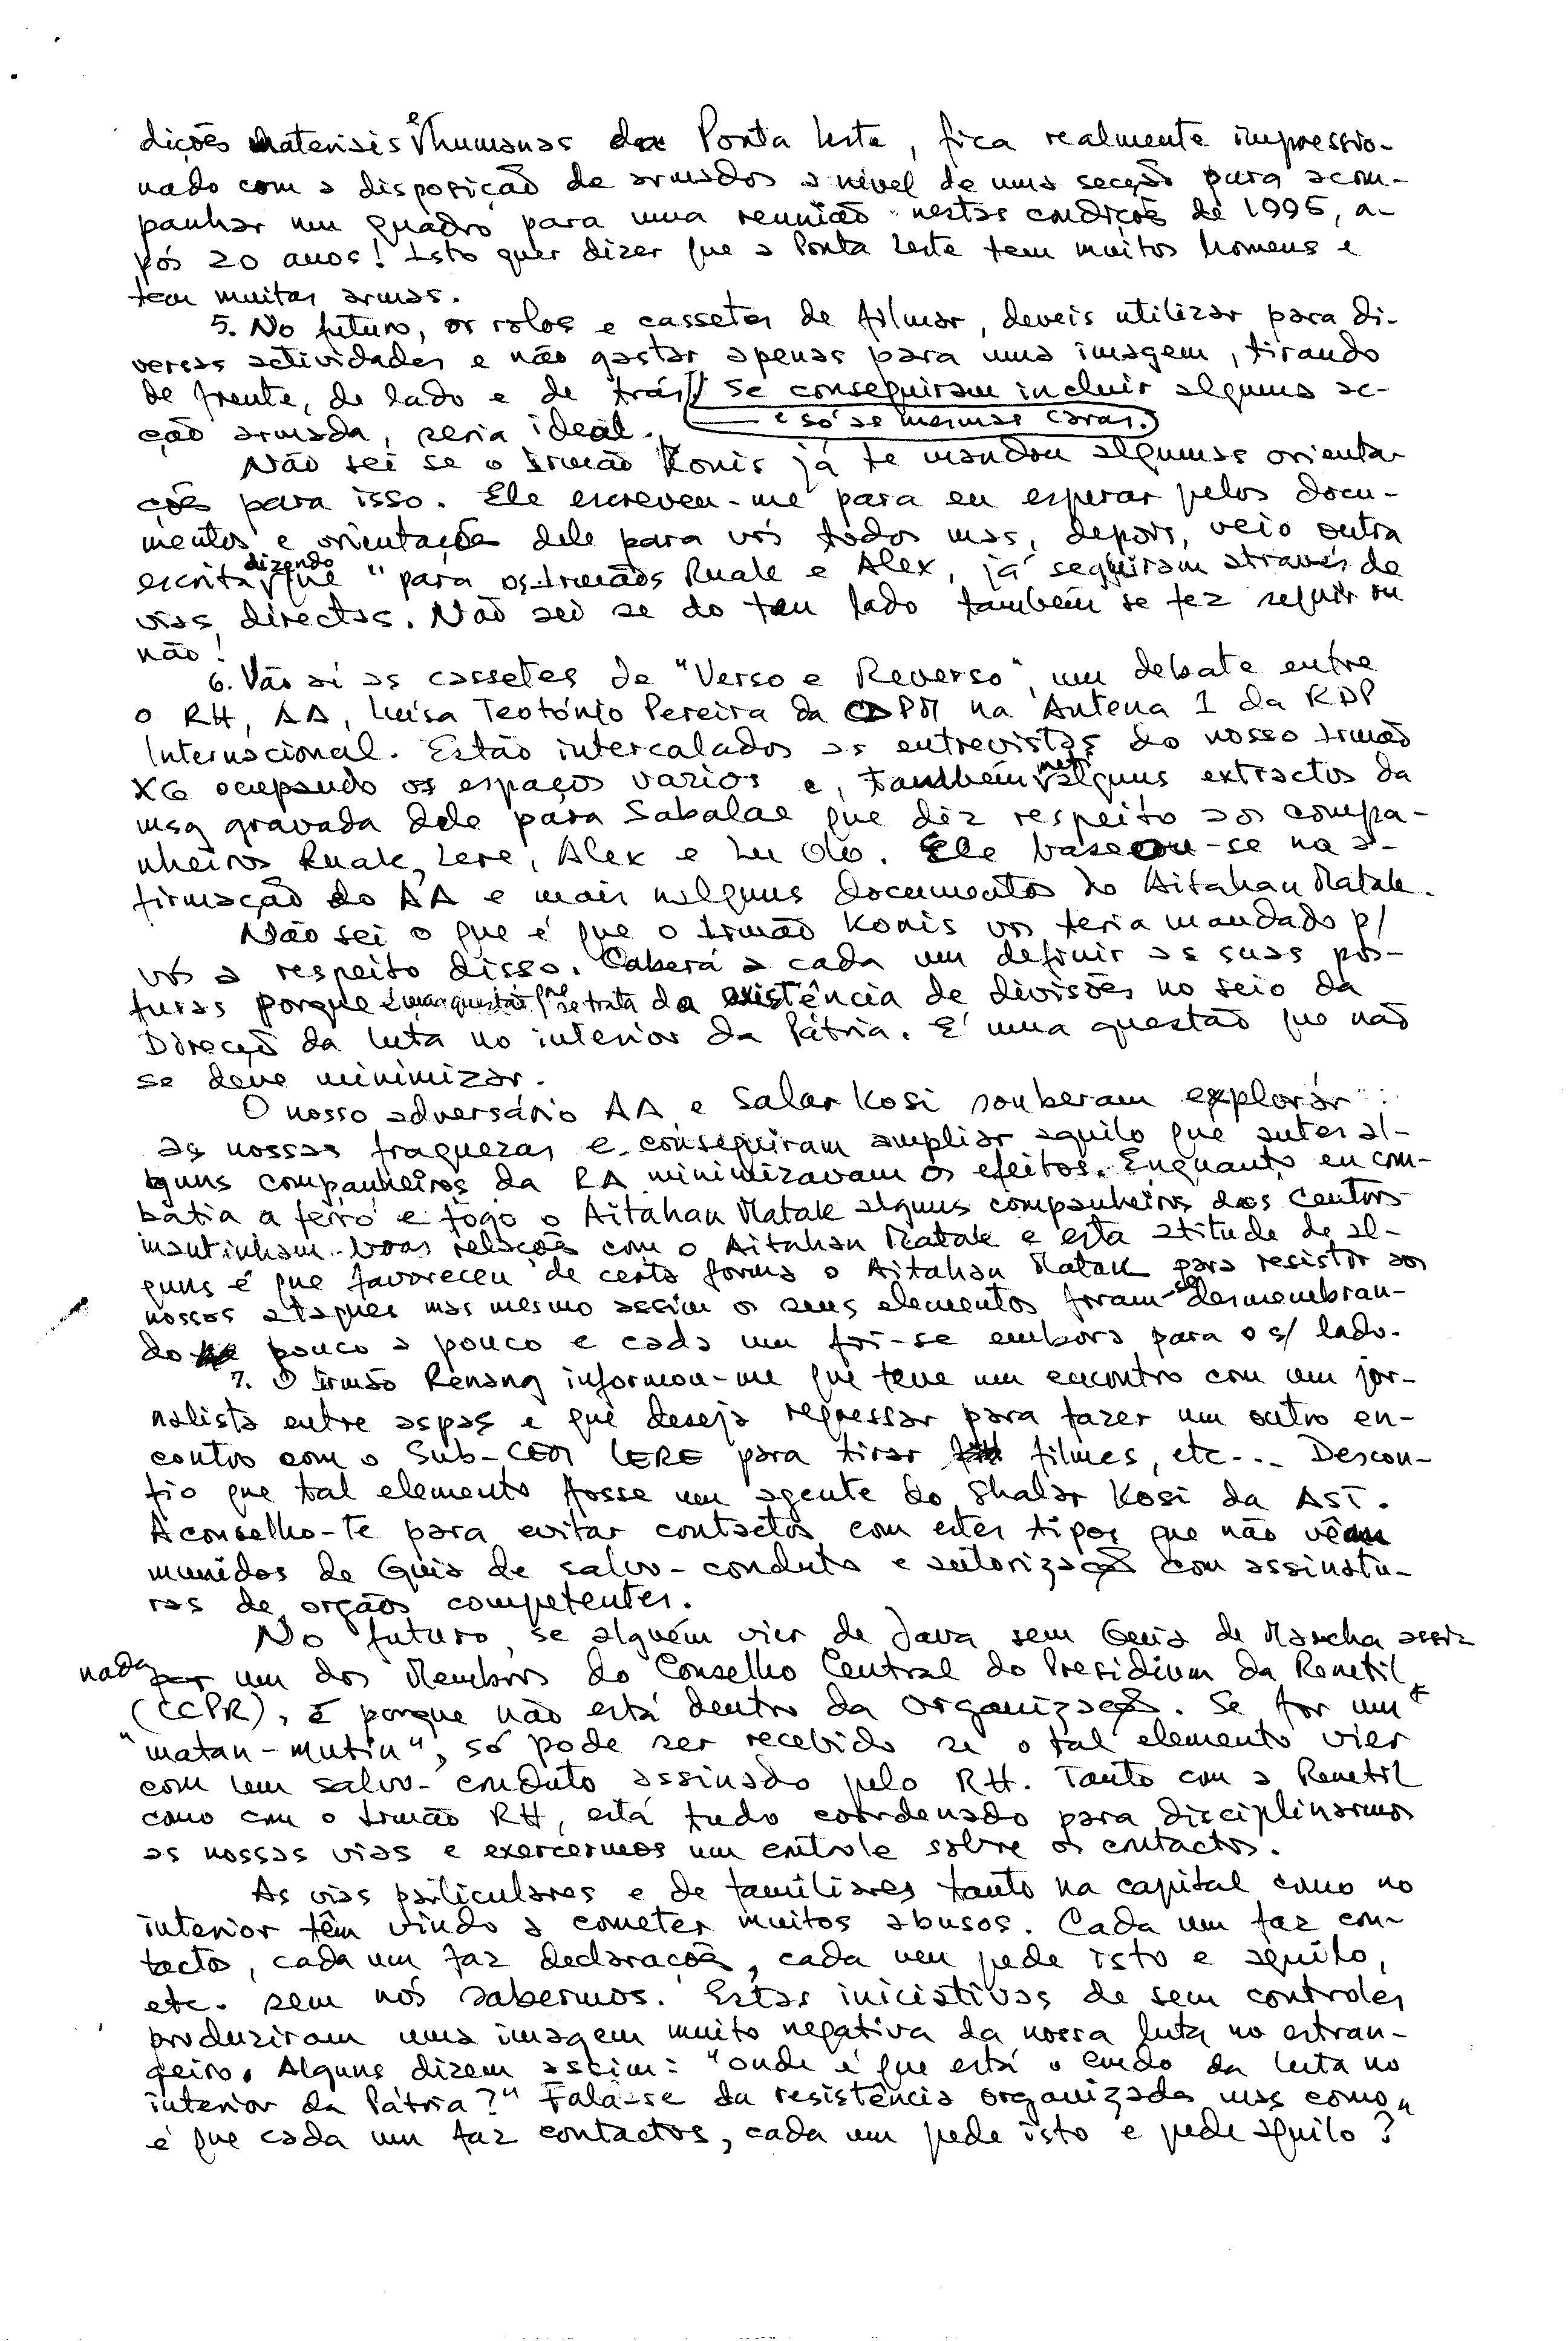 dições materiais e humanas da Ponta Leste, fica realmente impressio-
nado com a disposição de armados a nível de uma secção para acom-
panhar um quadro para uma reunião nestas condições de 1995, a-
pós 20 anos! Isto quer dizer que a Ponta Leste tem muitos homens e
tem muitas armas.
5. No futuro, os rolos e cassetes de filmar, deveis utilizar para di-
versas actividades e não gastar apenas para uma imagem, tirando
de frente, de lado e de trás // Se conseguiram incluir alguma ac-
e só as mesmas caras.
ção armada, seria ideal.
Não sei se o Irmão Konis já te mandou algumas orienta
ções para isso. Ele escreveu-me para eu esperar pelos docu-
mentos e orientações dele para vós todos mas, depois, veio outra
escrita dizendo que "para os Irmãos Ruale e Alex, já seguiram através de
vias directas. Não sei se do teu lado também se fez seguir ou
não!
6. Vão aí as cassetes de "Verso e Reverso", um debate entre
o RH, AA, Luísa Teotónio Pereira da CDPM na Antena 1 da RDP
Internacional. Estão intercalados as entrevistas do nosso Irmão
XG ocupando os espaços varios e, também meti alguns extractos da
msg gravada dele para Sabalae que diz respeito aos compa-
nheiros Ruak, Lere, Alex e Lu Olo. Ele baseou-se na a-
firmação do AA e mais nalguns documentos do Aitahan Matak.
Não sei o que é que o Irmão Konis vos teria mandado p/
vós a respeito disso. Caberá a cada um definir as suas pos-
turas porque é uma questão que se trata da existência de divisões no seio da
Direcção da luta no interior da Pátria. É uma questão que não
se deve minimizar.
O nosso adversário AA e Salar Kosi souberam explorar
as nossas fraquezas e conseguiram ampliar aquilo que antes al-
guns companheiros da RA minimizavam os efeitos. Enquanto eu com-
batia a ferro e fogo o Aitahan Matak alguns companheiros dos Centros
mantinham boas relações com o Aitahan Matak e esta atitude de al-
guns é que favoreceu de certa forma o Aitahan Matak para resistir aos
nossos ataques mas mesmo assim os seus elementos foram-se desmembran-
do pouco a pouco e cada um foi-se embora para o s/ lado.
7. O Irmão Renang informou-me que teve um encontro com um jor-
nalista entre aspas e que deseja regressar para fazer um outro en-
contro com o Sub-CEM LERE para tirar filmes, etc... Descon-
fio que tal elemento fosse um agente do Shalar Kosi da ASI.
Aconselho-te para evitar contactos com estes tipos que não vêm
munidos de Guia de salvo-conduto e autorização com assinatu-
ras de orgãos competentes.
No futuro, se alguém vier de Java sem Guia de Marcha assi-
nada por um dos Membros do Conselho Central do Presidium da Renetil
(CCPR), é porque não está dentro da Organização. Se for um
"matan-mutin", só pode ser recebido se o tal elemento vier
com um salvo-conduto assinado pelo RH. Tanto com a Renetil
como com o Irmão RH, está tudo coordenado para disciplinarmos
as nossas vias e exercermos um controle sobre os contactos.
As vias particulares e de familiares tanto na capital como no
interior têm vindo a cometer muitos abusos. Cada um faz con-
tactos, cada um faz declarações, cada um pede isto e aquilo,
etc. sem nós sabermos. Estas iniciativas de sem controles
produziram uma imagem muito negativa da nossa luta no estran-
geiro. Alguns dizem assim: "onde é que está o cmdo da luta no
interior da Pátria?" Fala-se da resistência organizada mas como
é que cada um faz contactos, cada um pede isto e pede aquilo?"